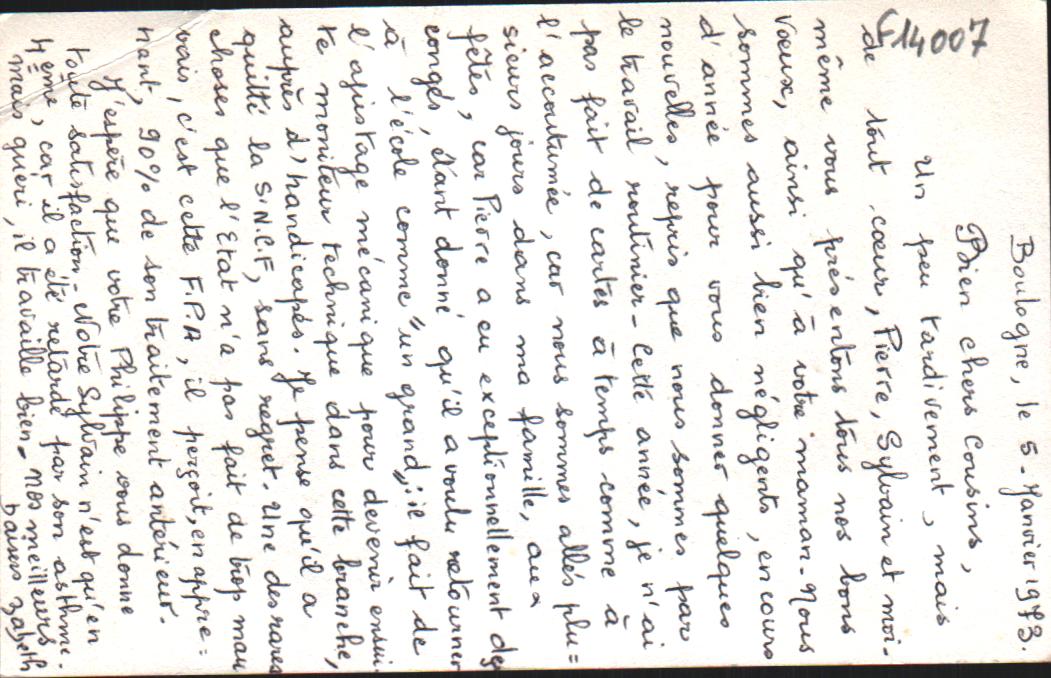 F14007
Boulogne, le 5-Janvier 1973.
Bien chers cousins,
Un peu tardivement, mais
de tout cœur, Pierre, Sylvain et moi-
même vous présentons tous nos bons
vœux, ainsi qu'à votre maman-Nous
sommes aussi bien négligents, en cours
d'année pour vous donner quelques
nouvelles, repris que nous sommes par
le travail routinier-Cette année, je n'ai
pas fait de cartes à temps comme à
l'accoutumée, car nous sommes allés plu=
sieurs jours dans ma famille, aux
fêtes, car Pierre a eu exceptionnellement des
congés, étant donné qu'il a voulu retourner
à l'école comme "un grand": il fait de
l'ajustage mécanique pour devenir ensui
te moniteur technique dans cette branche,
auprès d'handicapés. Je pense qu'il a
quitté la S.N.C.F, sans regret. Une des rares
choses que l'Etat n'a pas fait de trop mau
vais, c'est cette F.P.A, il perçoit, en appre=
nant, 90% de son traitement antérieur.
J'espère que votre Philippe vous donne
toute satisfaction-Notre Sylvain n'est qu'en
4ème, car il a été retardé par son asthme.
mais guéri, il travaille bien-nos meilleurs
baisers Zabeth